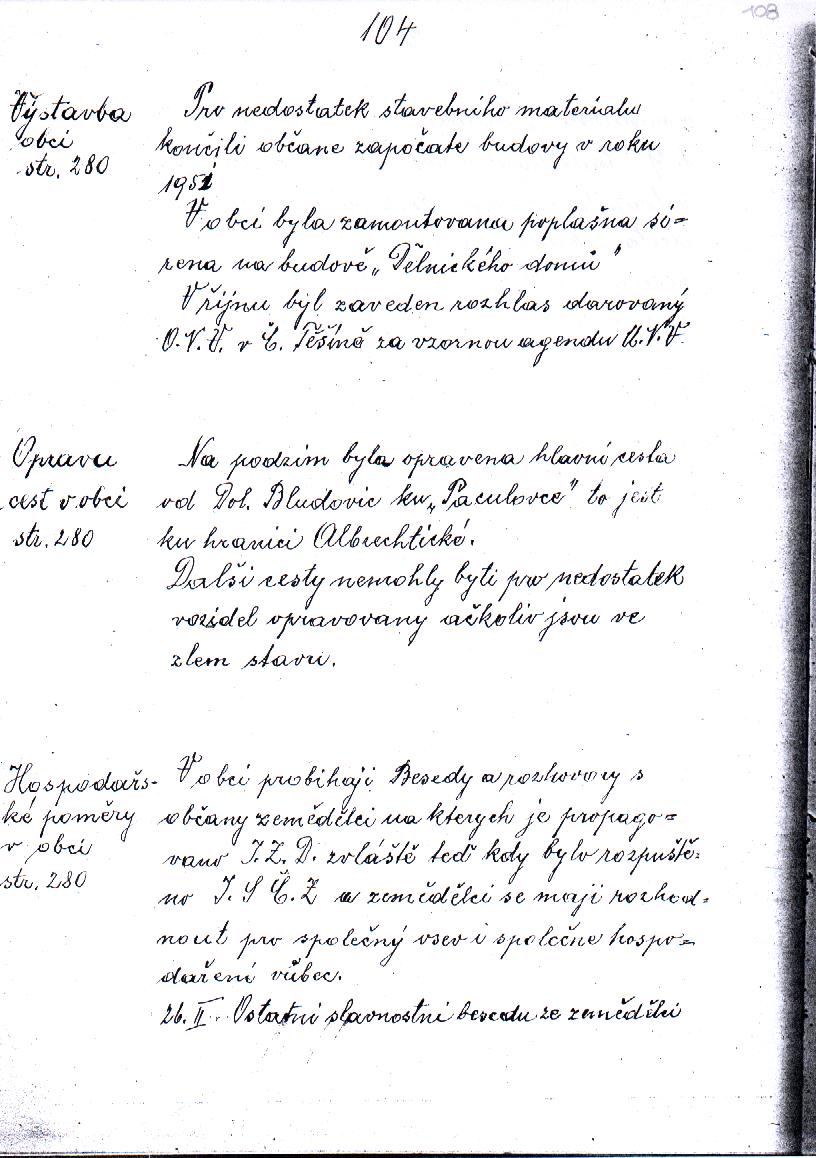 108
104
Výstavba
obcí
str. 280
Pro nedostatek stavebniho materialu
končili občane započate budovy v roku
1951
V obci byla zamontovana poplašna si=
rena na budově „Dělnického domů“
V říjnu byl zaveden rozhlas darovaný
O.N.V. v Č. Těšíně za vzornou agendu M.N.V.
Oprava
cest v obci
str. 280
Na podzim byla opravena hlavní cesta
od Dol. Bludovic ku „Paculovce“ to jest
ku hranici Albrechtické.
Další cesty nemohly byti pro nedostatek
vozidel opravovany ačkoliv jsou ve
zlem stavu.
Hospodařs-
ké poměry
v obci
str. 280
V obci probihaji Besedy a rozhovory s
občany zemědělci na kterych je propago=
vano J.Z.D. zvláště teď kdy bylo rozpuště=
no J.S Č.Z a zemědělci se maji rozhod=
nout pro společný osev i společne hospo=
dařeni vůbec.
26. II. Ostatni slavnostni besedu ze zemědělci